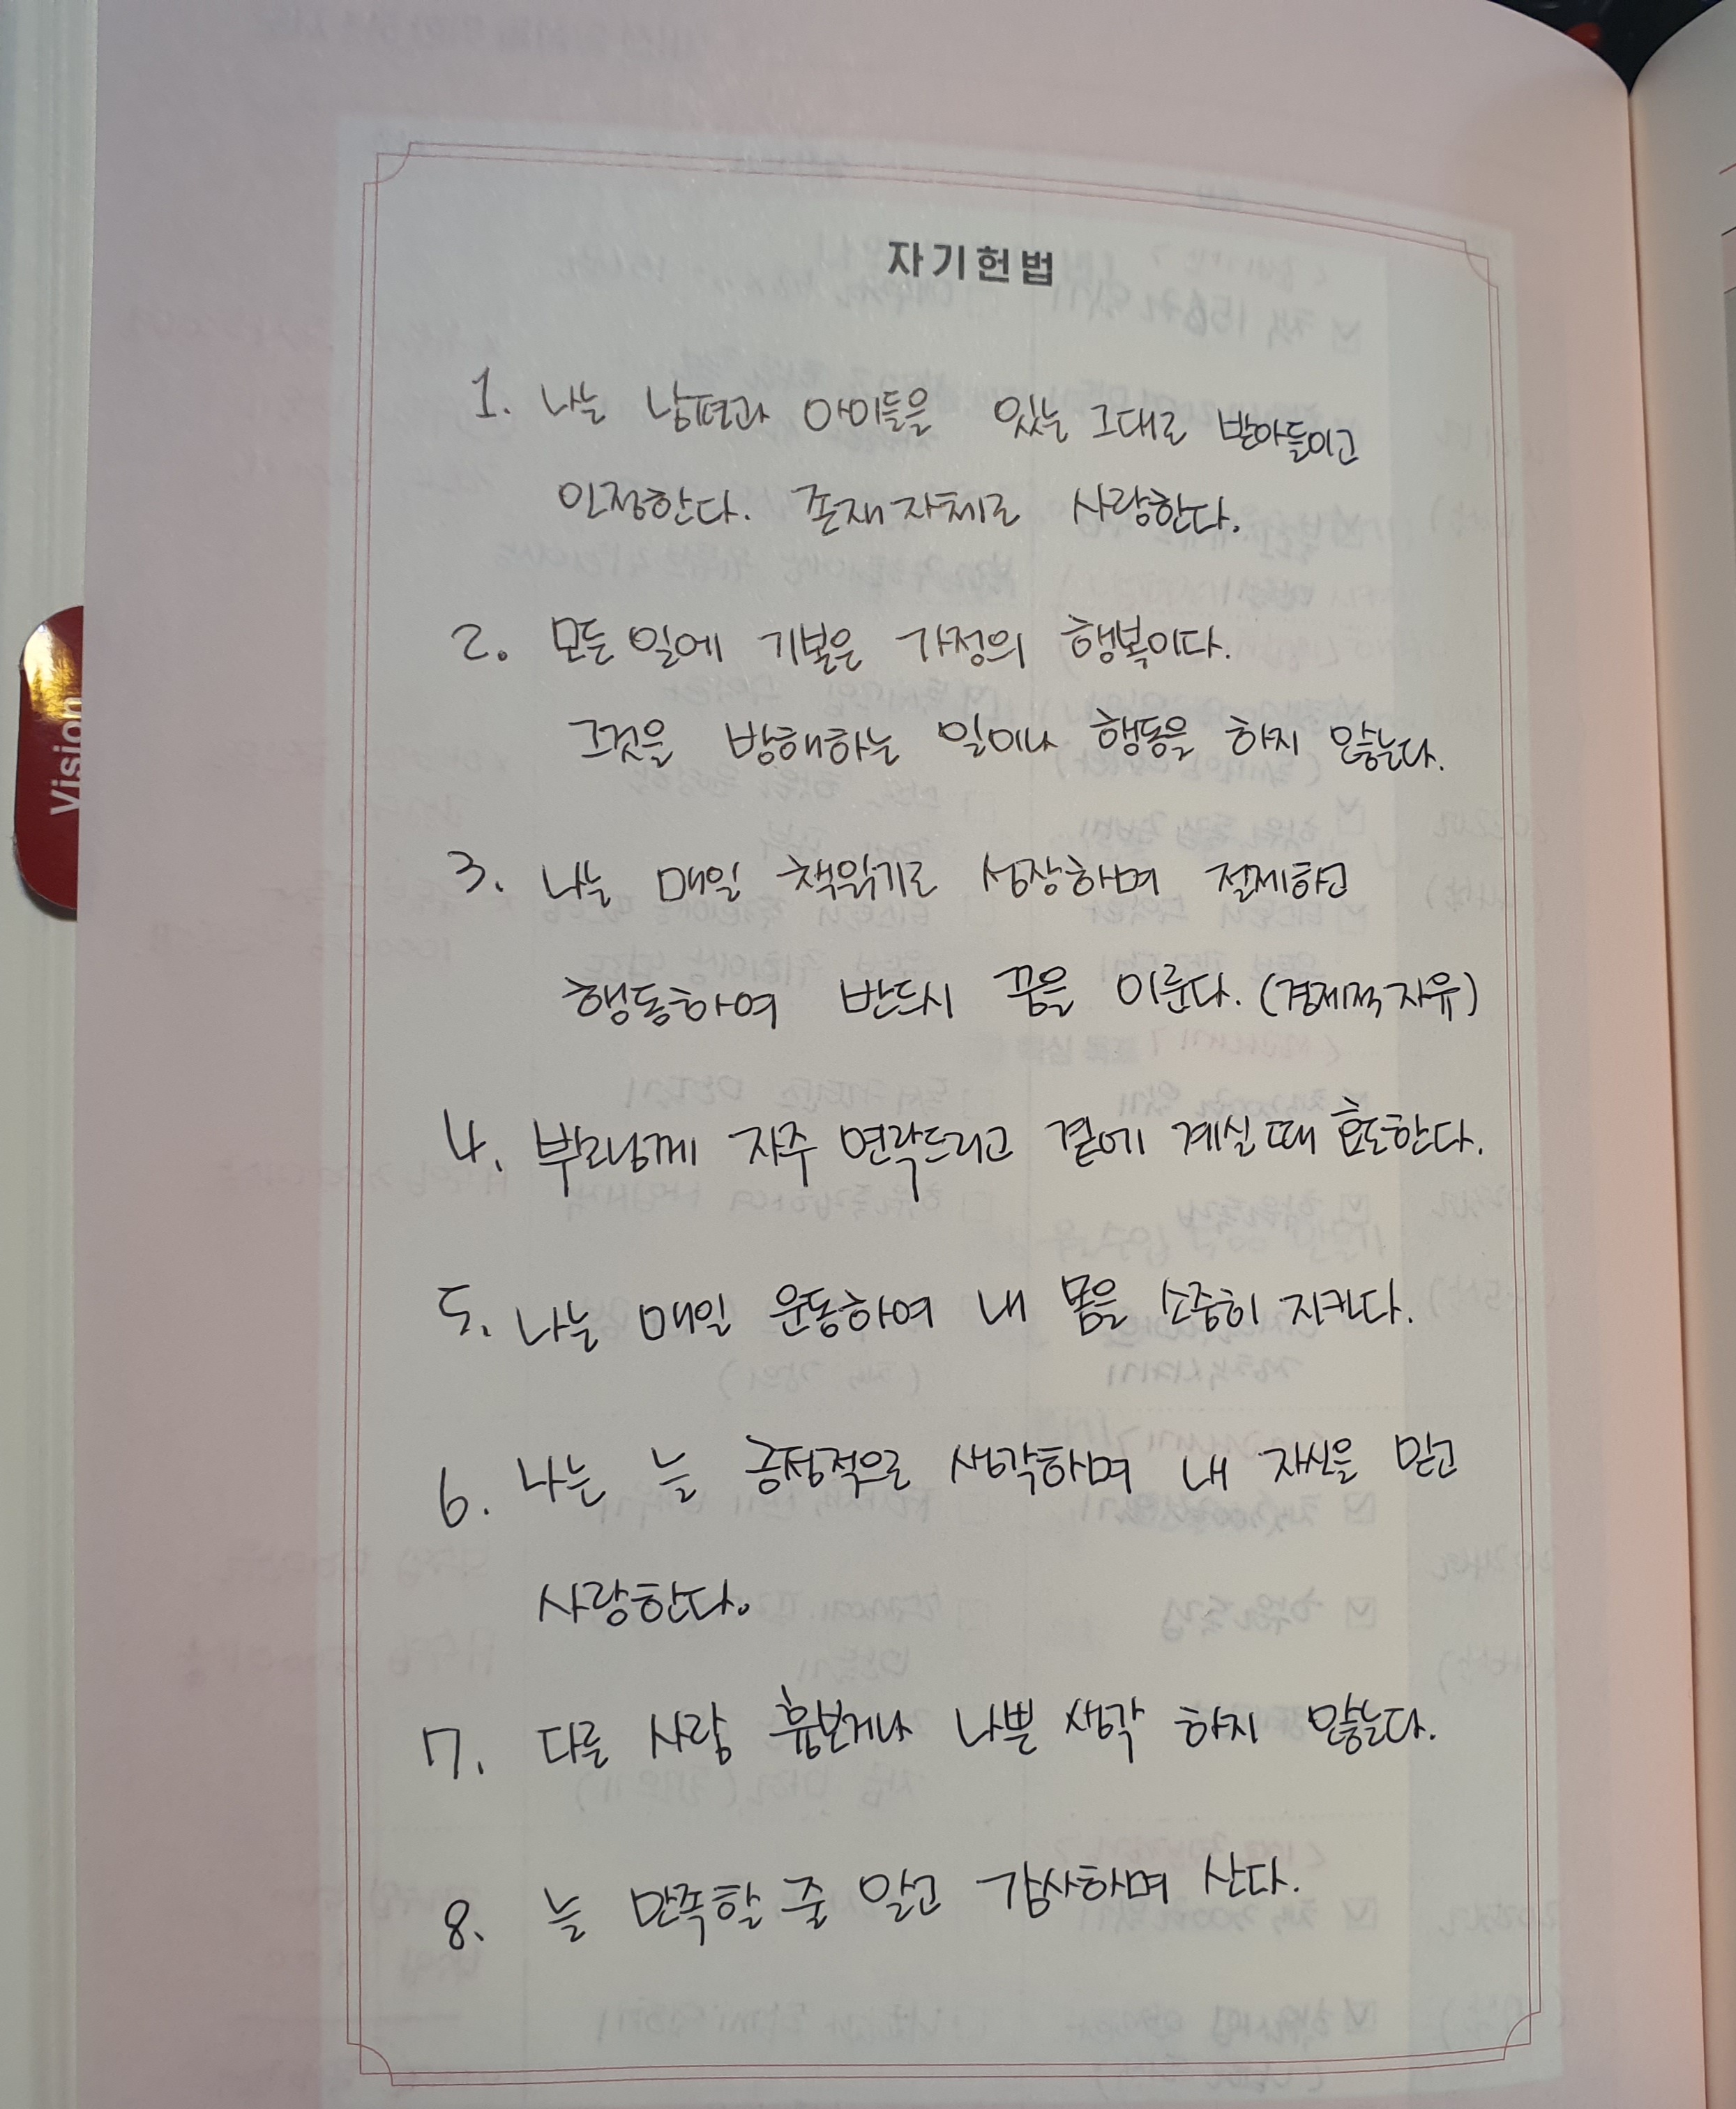 자기헌법
1. 나는 남편과 아이들을 있는 그대로 받아들이고
인정한다. 존재자체로 사랑한다.
2. 모든 일에 기본은 가정의 행복이다.
그것을 방해하는 일이나 행동을 하지 않는다.
3. 나는 매일 책읽기로 성장하며 절제하고
행동하여 반드시 꿈을 이룬다. (경제적 자유)
4. 부모님께 자주 연락드리고 곁에 계실 때 효도한다.
5. 나는 매일 운동하여 내 몸을 소중히 지킨다.
6. 나는 늘 긍정적으로 생각하며 내 자신을 믿고
사랑한다.
7. 다른 사람 흉보거나 나쁜 생각 하지 않는다.
8. 늘 만족할 줄 알고 감사하며 산다.
Vision